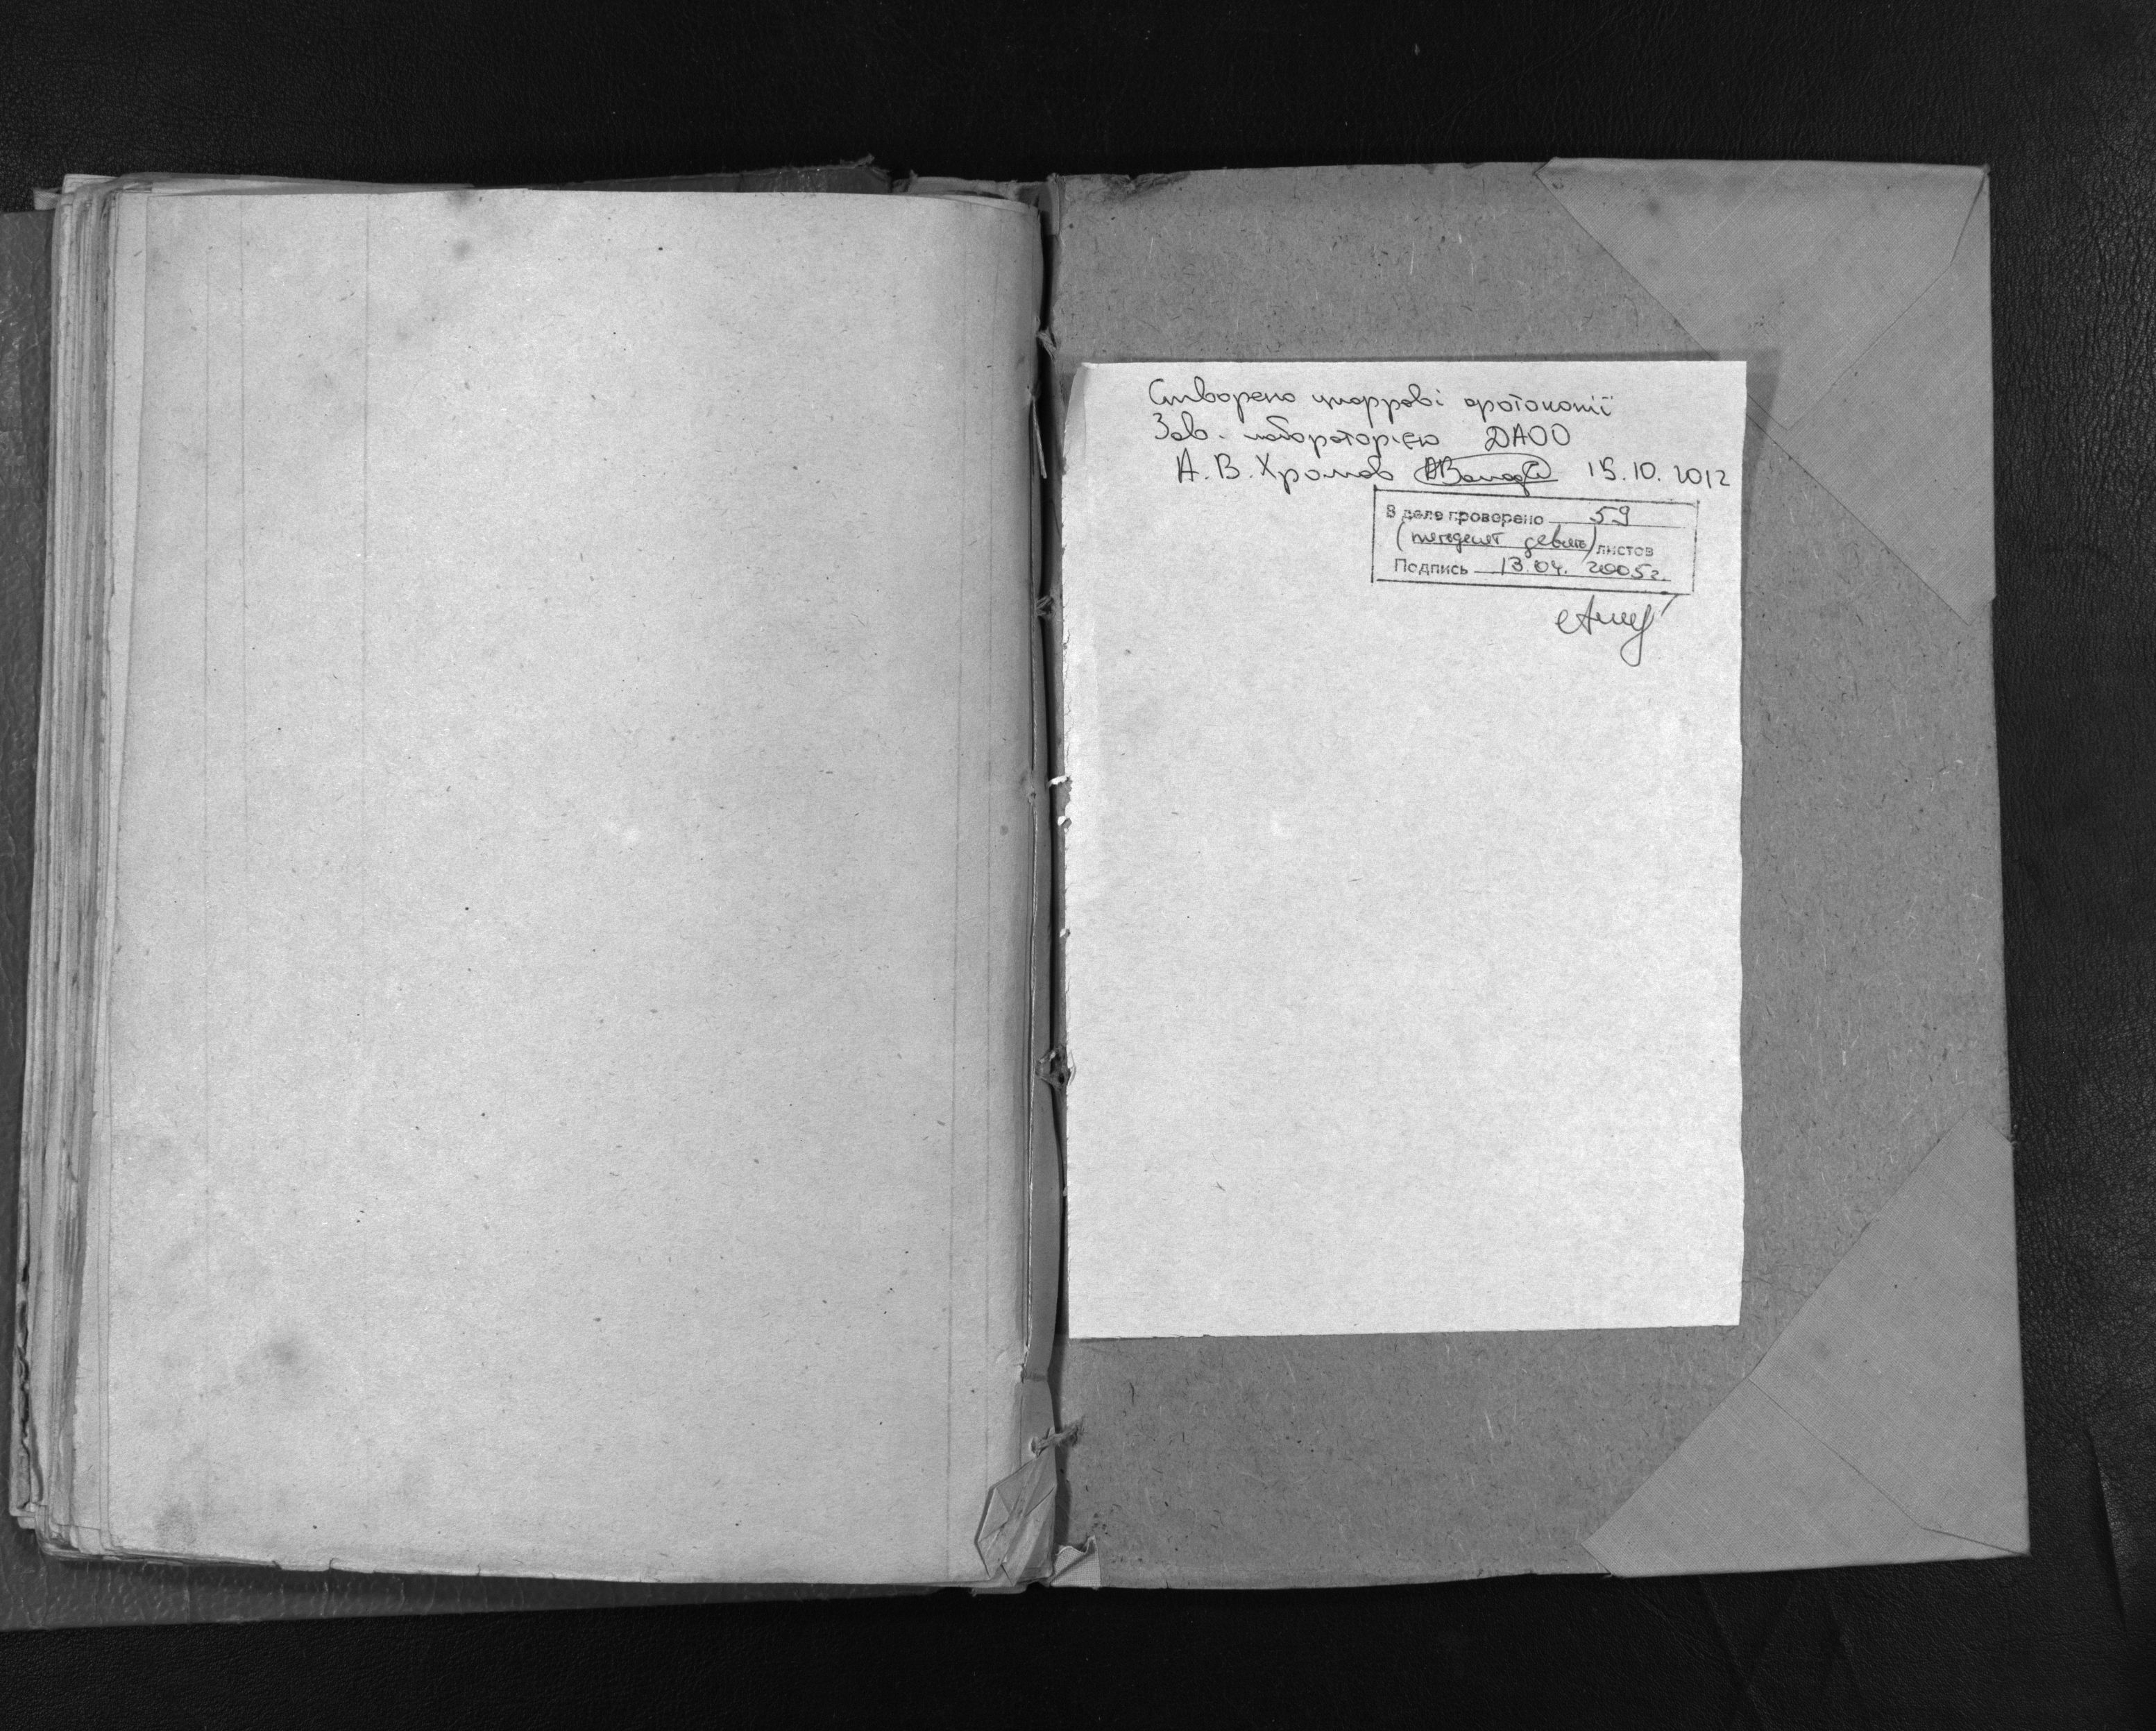 Створено цифрові фотокопії
Зав. лабораторією ДАОО
А.В. Хромов 15.10.2012
В деле проверено 59
(пятдесят девять) листов
Подпись 13.04. 2005г.